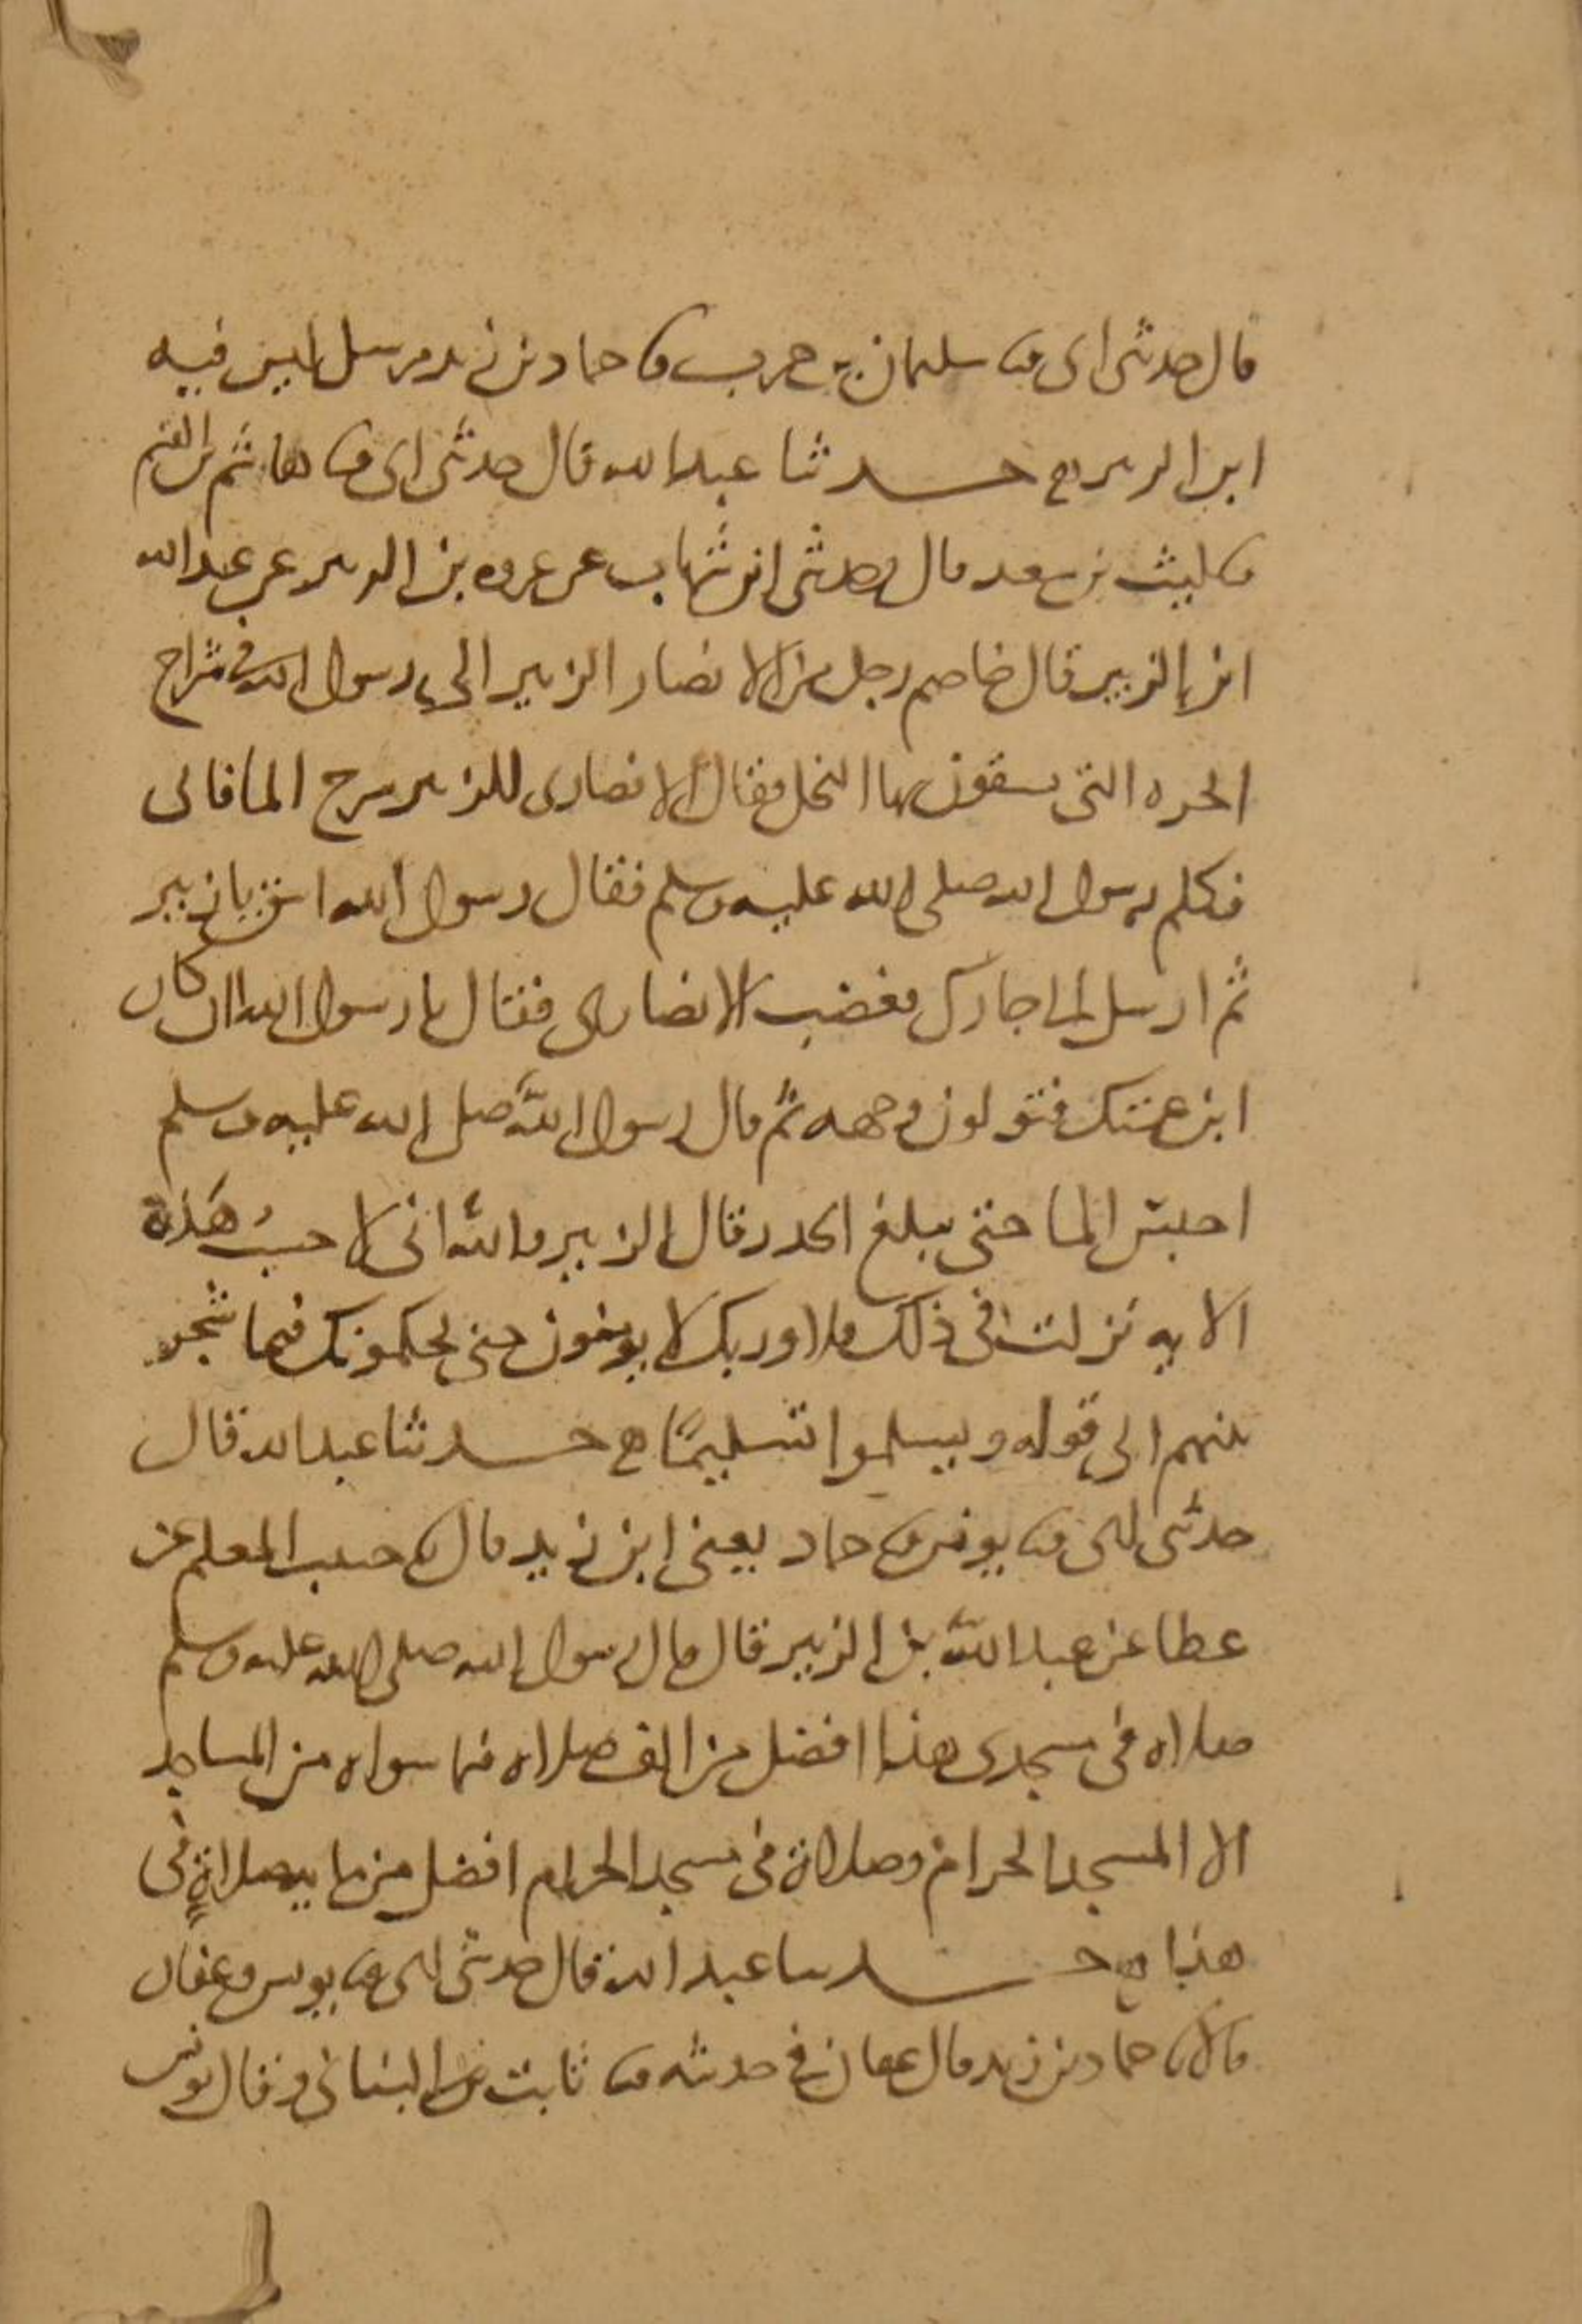 قال حدثني ابي ثنا سليمان بن حرب ثنا حماد بن زيد مرسل ليس فيه
ابن الزبير ح حدثنا عبد الله قال حدثني ابي ثنا هاشم بن القسم
ثنا ليث بن سعد قال وحدثني ابن شهاب عن عروه بن الزبير عن عبد الله
ابن الزبير قال خاصم رجل من الانصار الزبير الى رسول الله في شراج
الحره التي يسقون بها النخل فقال الانصاري للزبير سرح الما فابى
فكلم رسول الله صلى الله عليه وسلم فقال رسول الله اسق يا زبير
ثم ارسل الى جارك فغضب الانصاري فقال يا رسول الله ان كان
ابن عمتك فتولون وجهه ثم قال رسول الله صلى الله عليه وسلم
احبس الما حتى يبلغ الجدر قال الزبير والله اني لا حسبُ هَذه
الايه نزلت في ذلك فلا وربك لا يومنون حتى يحكموك فيما شجر
بينهم الى قوله ويسلموا تسليمًا ح حدثنا عبد الله قال
حدثني ابي ثنا يونس ثنا حماد يعني ابن زيد قال ثنا حبيب المعلم عن
عطا عن عبد الله بن الزبير قال قال رسول الله صلى الله عليه وسلم
صلاه في مسجدي هذا افضل من الف صلاه فيما سواه من المساجد
الا المسجد الحرام وصلاة في مسجد الحرام افضل من مايه صلاةٍ في
هذا ح حدثنا عبد الله قال حدثني ابي ثنا يونس وعفان
قالا ثنا حماد بن زيد قال عفان في حديثه ثنا ثابت البناني وقال يونس